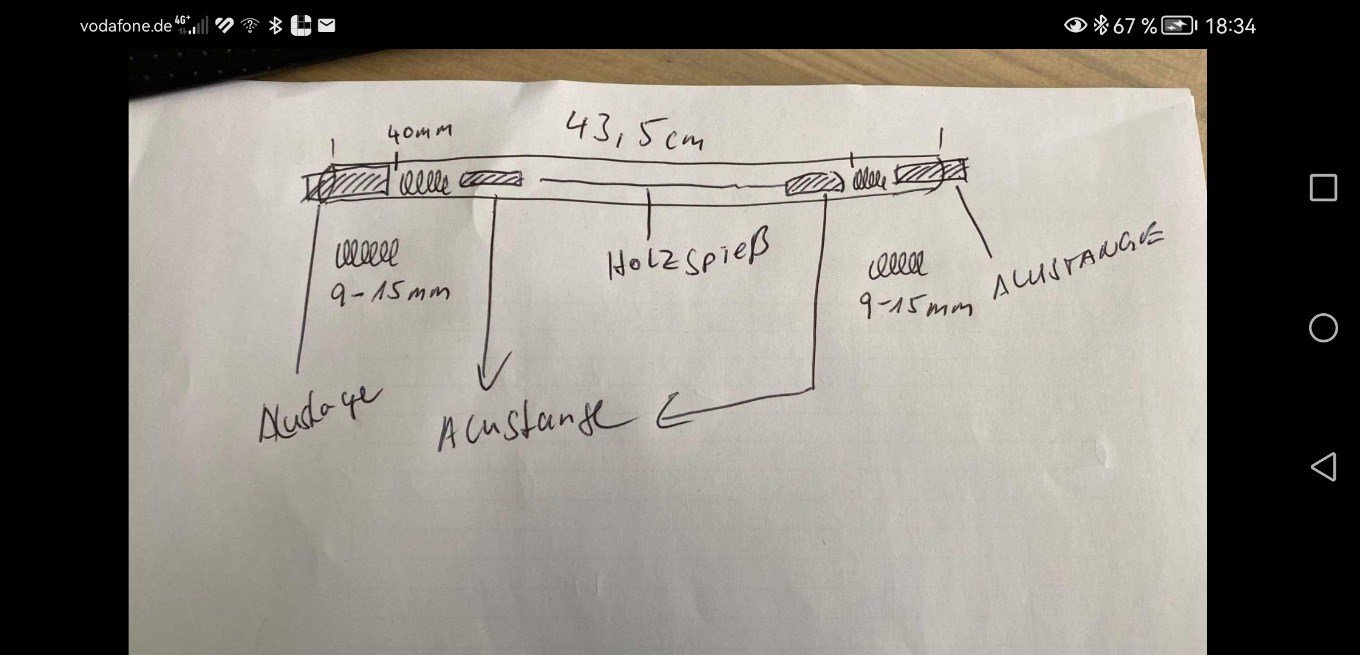 vodafone.de 4G+ 67 % 18:34
40mm
43,5cm
Holzspieß
9-15mm
9-15mm
ALUSTANGE
Alustange